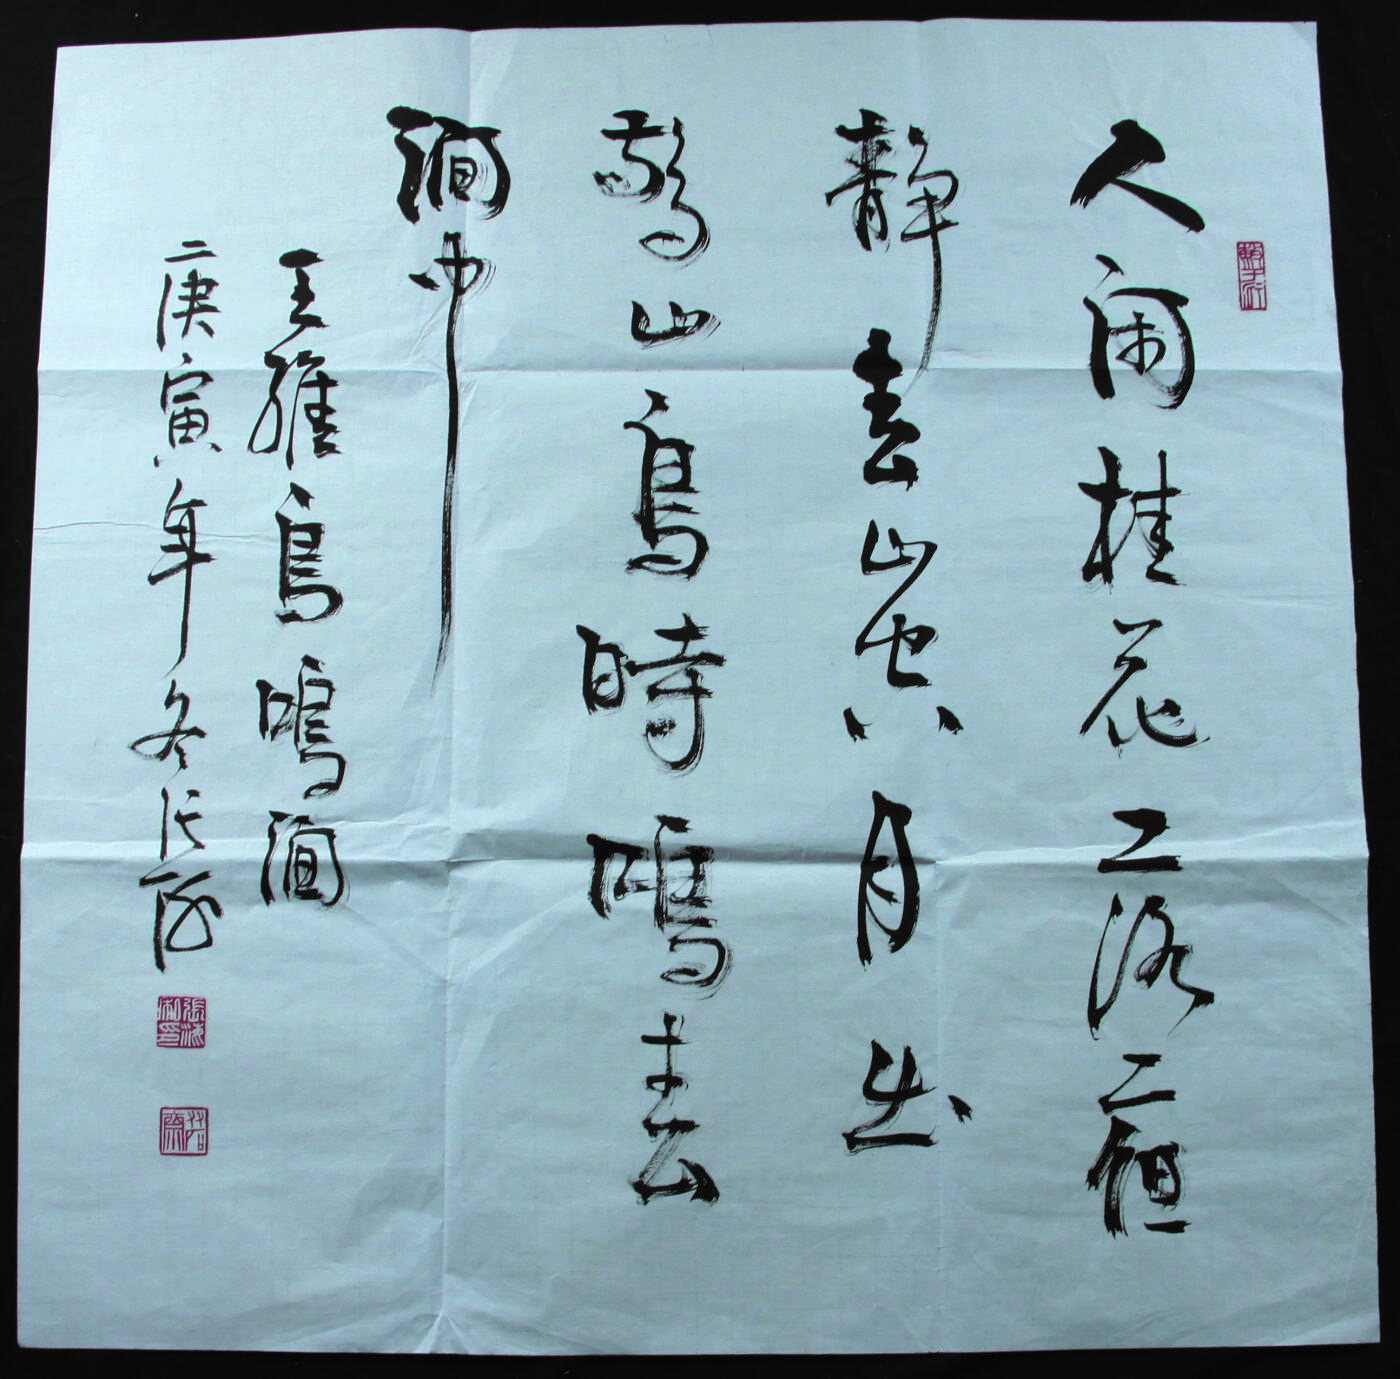 人閑桂花落亱
靜春山空月出
驚山鳥時鳴春
澗中
王維鳥鳴澗
庚寅年冬